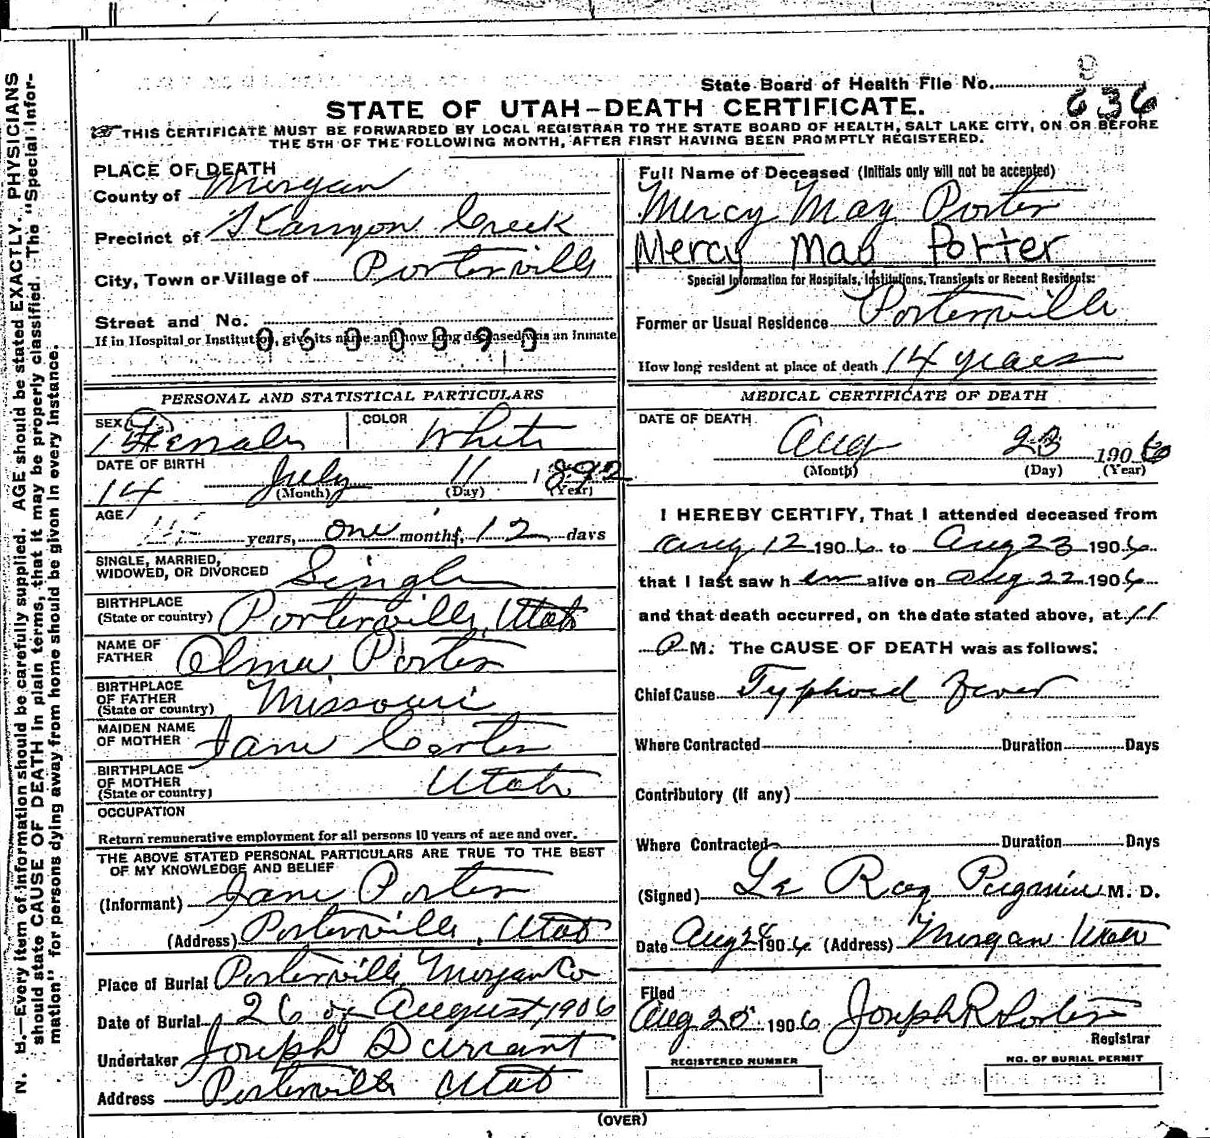 State Board of Health File No. 9
636
STATE OF UTAH—DEATH CERTIFICATE.
THIS CERTIFICATE MUST BE FORWARDED BY LOCAL REGISTRAR TO THE STATE BOARD OF HEALTH, SALT LAKE CITY, ON OR BEFORE
THE 5TH OF THE FOLLOWING MONTH, AFTER FIRST HAVING BEEN PROMPTLY REGISTERED.
PLACE OF DEATH
County of Morgan
Precinct of Kanyon Creek
City, Town or Village of Porterville
Street and No.
If in Hospital or Institution, give its name and how long deceased was an inmate
0630090
PERSONAL AND STATISTICAL PARTICULARS
SEX Female COLOR White
DATE OF BIRTH
14 July 11 1892
(Month) (Day) (Year)
AGE
years, one months, 12 days
SINGLE, MARRIED,
WIDOWED, OR DIVORCED Single
BIRTHPLACE
(State or country) Porterville, Utah
NAME OF
FATHER Alma Porter
BIRTHPLACE
OF FATHER
(State or country) Missouri
MAIDEN NAME
OF MOTHER Jane Carter
BIRTHPLACE
OF MOTHER
(State or country) Utah
OCCUPATION
Return remunerative employment for all persons 10 years of age and over.
THE ABOVE STATED PERSONAL PARTICULARS ARE TRUE TO THE BEST
OF MY KNOWLEDGE AND BELIEF
(Informant) Jane Porter
(Address) Porterville, Utah
Place of Burial Porterville Morgan Co
Date of Burial 26 of August, 1906
Undertaker Joseph Durrant
Address Porterville Utah
Full Name of Deceased (Initials only will not be accepted)
Mercy May Porter
Mercy May Porter
Special Information for Hospitals, Institutions, Transients or Recent Residents:
Former or Usual Residence Porterville
How long resident at place of death 14 years
MEDICAL CERTIFICATE OF DEATH
DATE OF DEATH
Aug 23 1906
(Month) (Day) (Year)
I HEREBY CERTIFY, That I attended deceased from
Aug 12 1906 to Aug 23 1906
that I last saw h er alive on Aug 22 1906
and that death occurred, on the date stated above, at 11
P M. The CAUSE OF DEATH was as follows:
Chief Cause Typhoid Fever
Where Contracted Duration Days
Contributory (If any)
Where Contracted Duration Days
(Signed) Le Roy Pugmire M. D.
Date Aug 24 1906 (Address) Morgan Utah
Filed
Aug 25 1906 Joseph R Porter
Registrar
REGISTERED NUMBER
NO. OF BURIAL PERMIT
(OVER)
N. B.—Every item of information should be carefully supplied. AGE should be stated EXACTLY. PHYSICIANS
should state CAUSE OF DEATH in plain terms, that it may be properly classified. The "Special Infor-
mation" for persons dying away from home should be given in every instance.